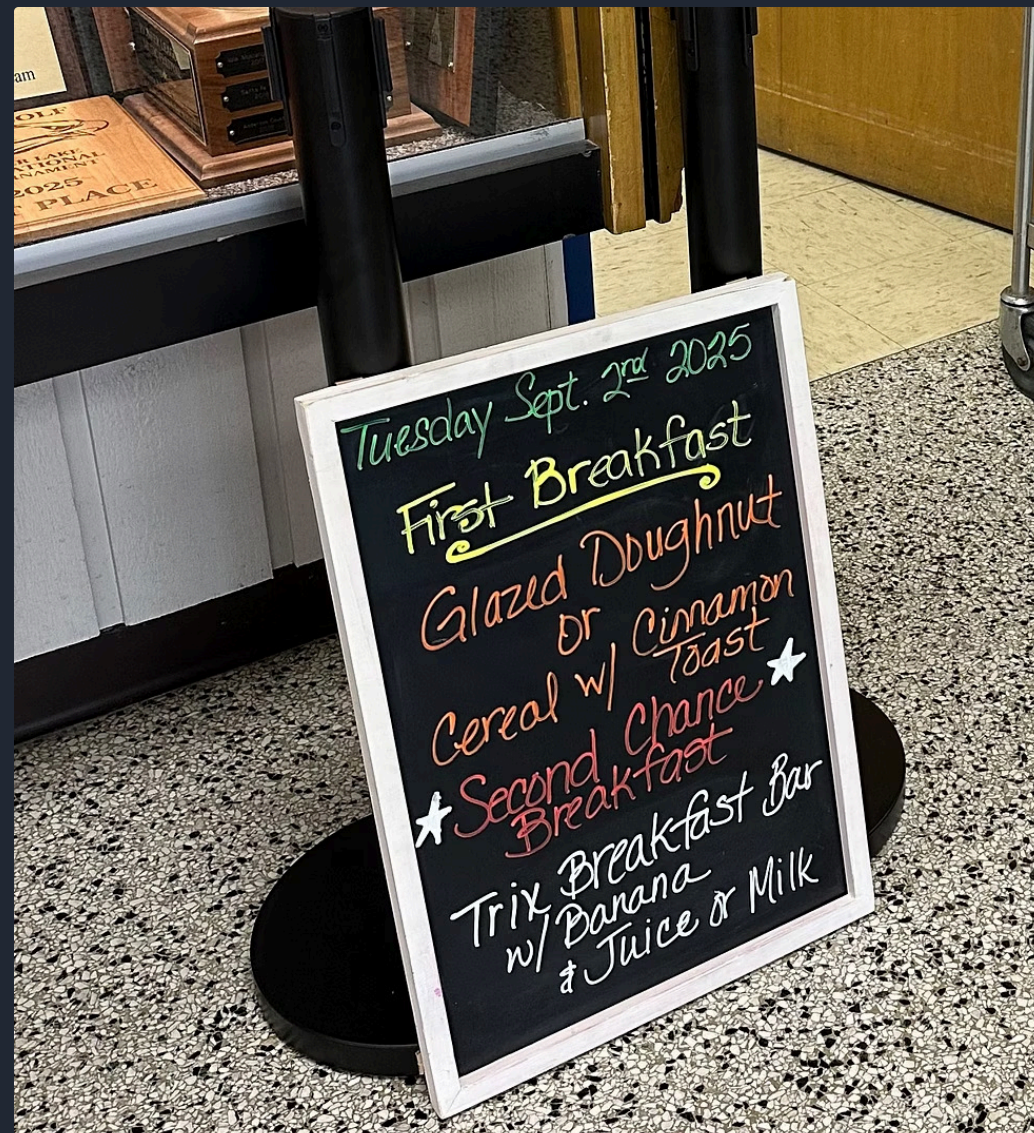 am
OLF
R LAKE
ATIONAL
RNAMENT
2025
T PLACE
Tuesday Sept. 2nd 2025
First Breakfast
Glazed Doughnut
or
Cereal w/ Cinnamon
Toast
Second Chance
Breakfast
Trix Breakfast Bar
w/ Banana
& Juice or Milk